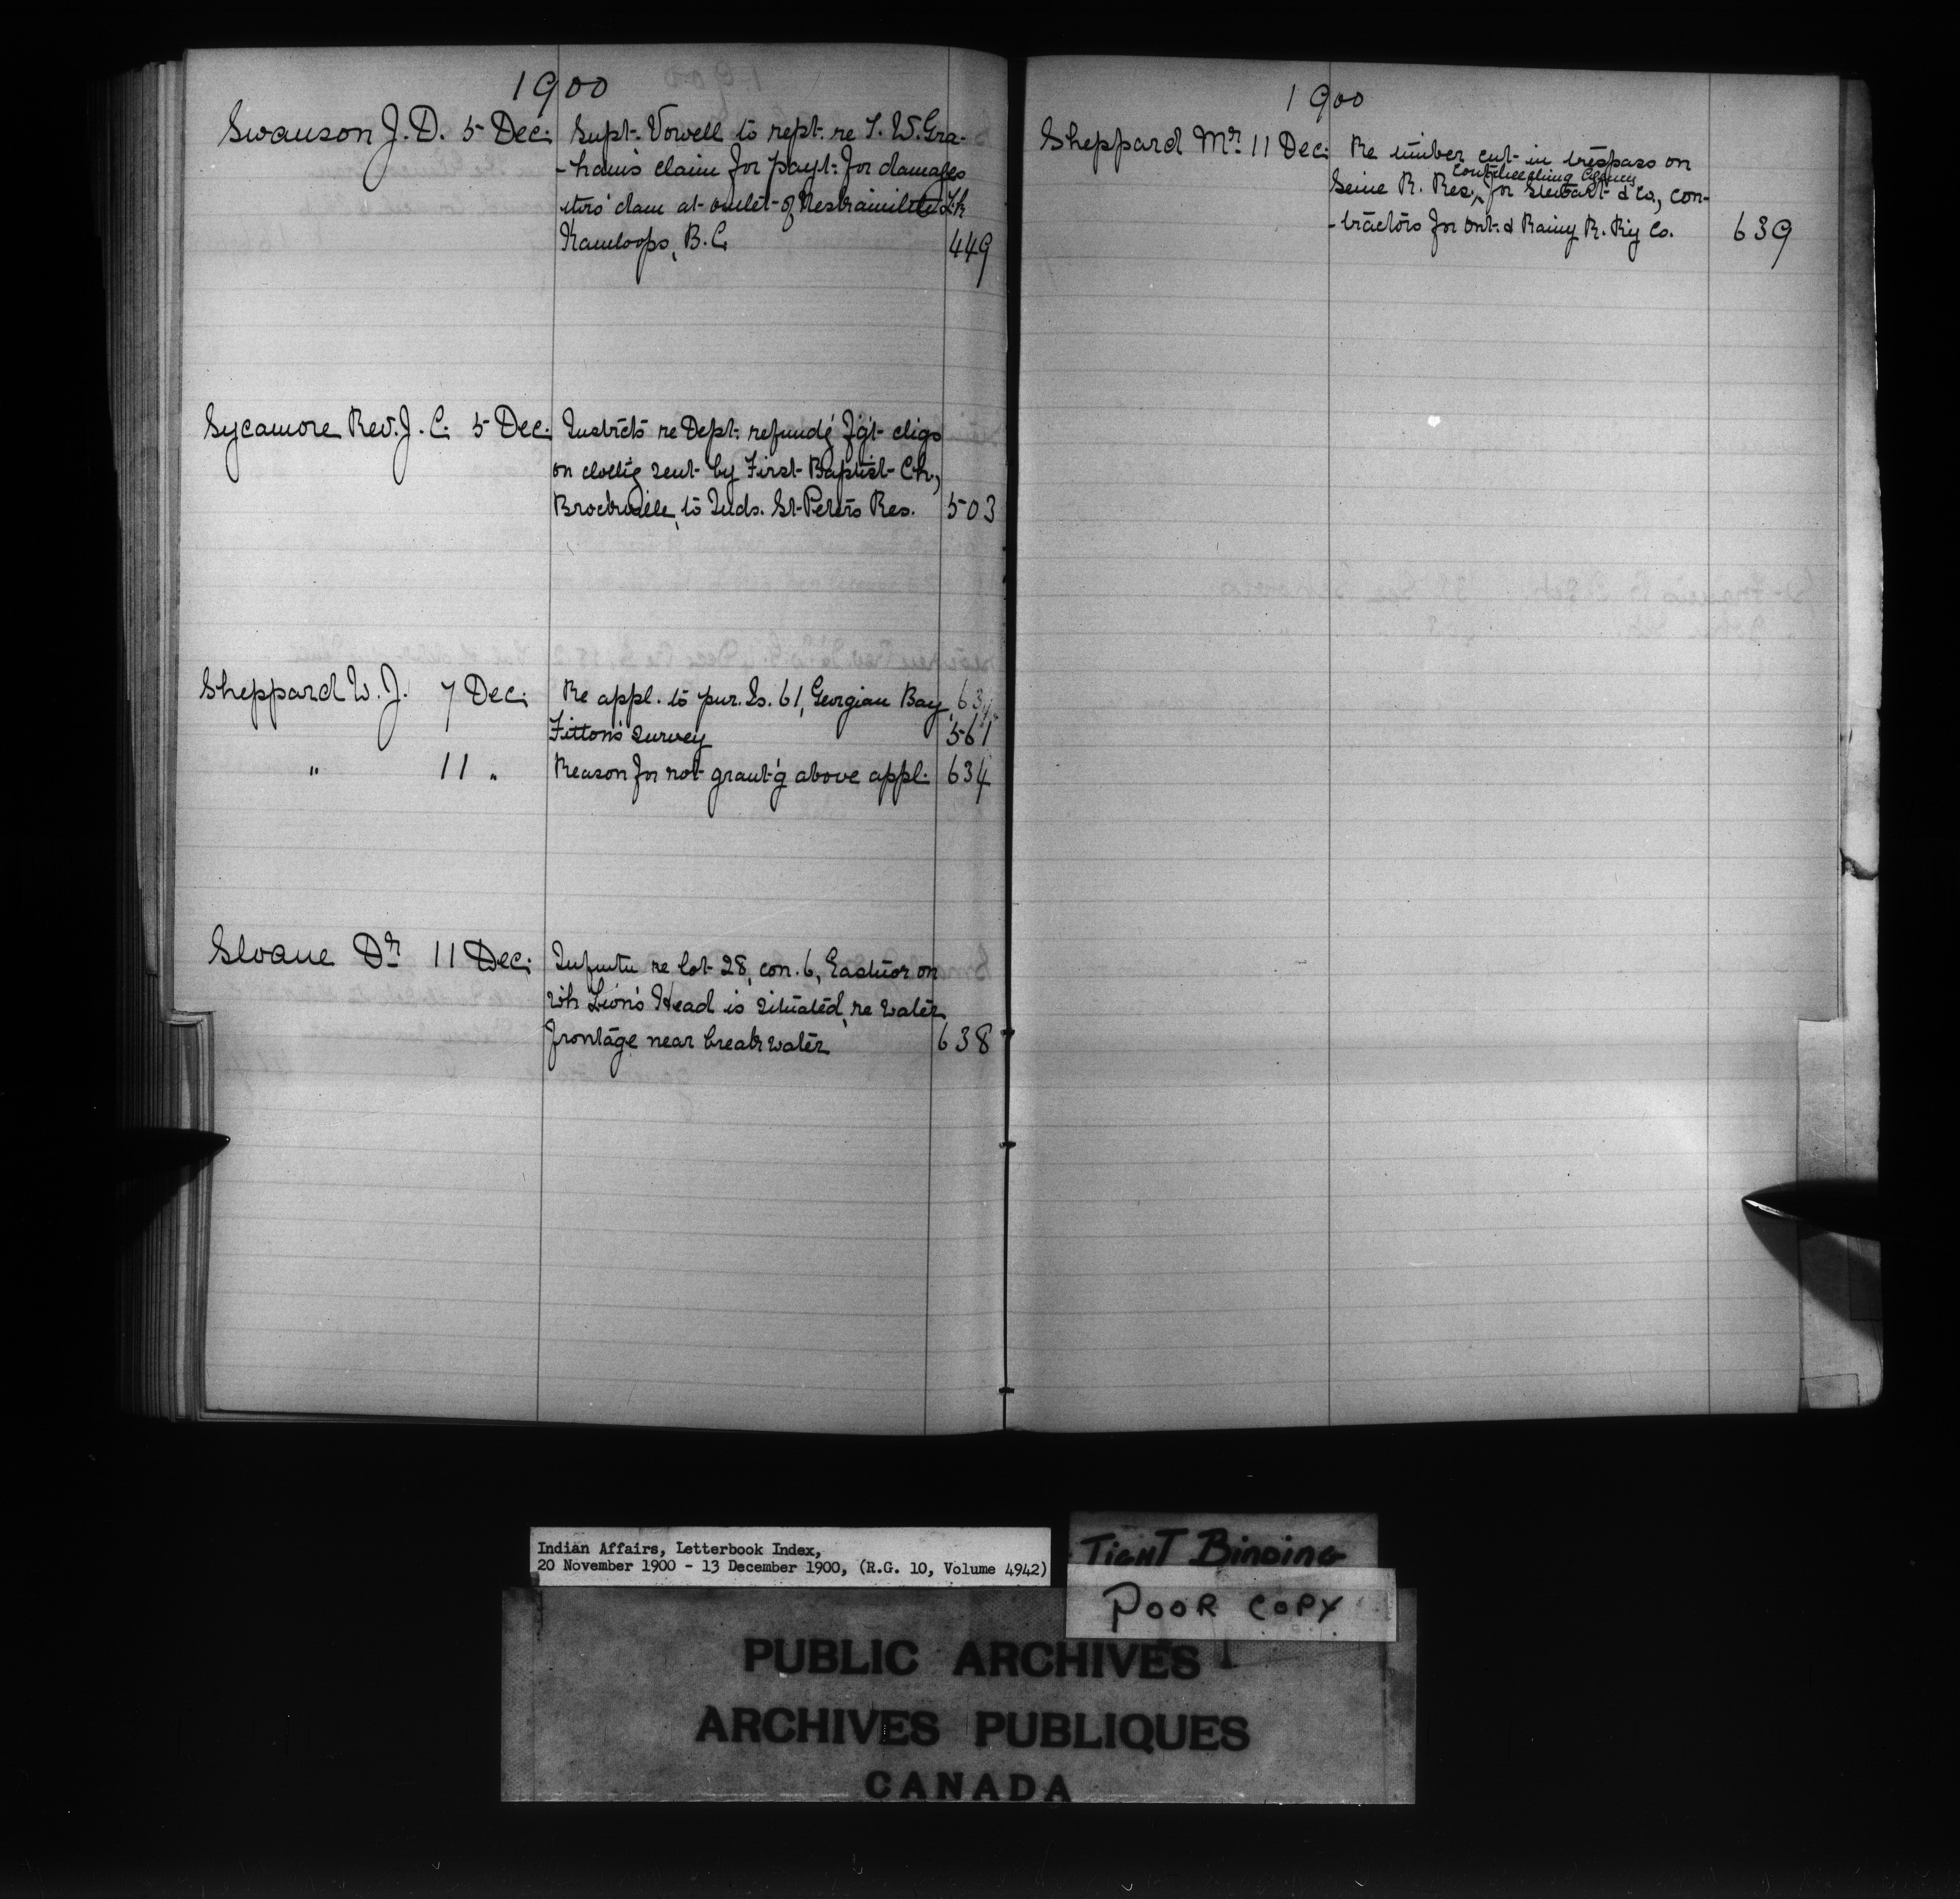 1900
Swanson J. D. 5 Dec. Supt. Vowell to rept. re J. W. Gra-
-ham's claim for payt. for damages
thro' dam at outlet of Lk
Kamloops, B.C. 449
Sycamore Rev. J. C. 5 Dec. Instrcts re Dept. refundg fgt chgs
on clothg sent by First Baptist Ch.,
Brockville, to Inds. St. Peters Res. 503
Sheppard W. J. 7 Dec. Re appl. to pur. Is. 61, Georgian Bay, 634
Fitton's survey 561
" 11 " Reason for not grant'g above appl. 634
Sloane Dr 11 Dec. Infmtn re lot 28, con. 6, Eastnor on
wh Lion's Head is situated, re water
frontage near breakwater 638
1900
Sheppard Mr 11 Dec. Re timber cut in trespass on
Coutcheeching Agency
Seine R. Res., for Stewart & Co., con-
-tractors for Ont. & Rainy R. Ry Co. 639
Indian Affairs, Letterbook Index,
20 November 1900 - 13 December 1900, (R.G. 10, Volume 4942)
TIGHT BINDING
POOR COPY
PUBLIC ARCHIVES
ARCHIVES PUBLIQUES
CANADA